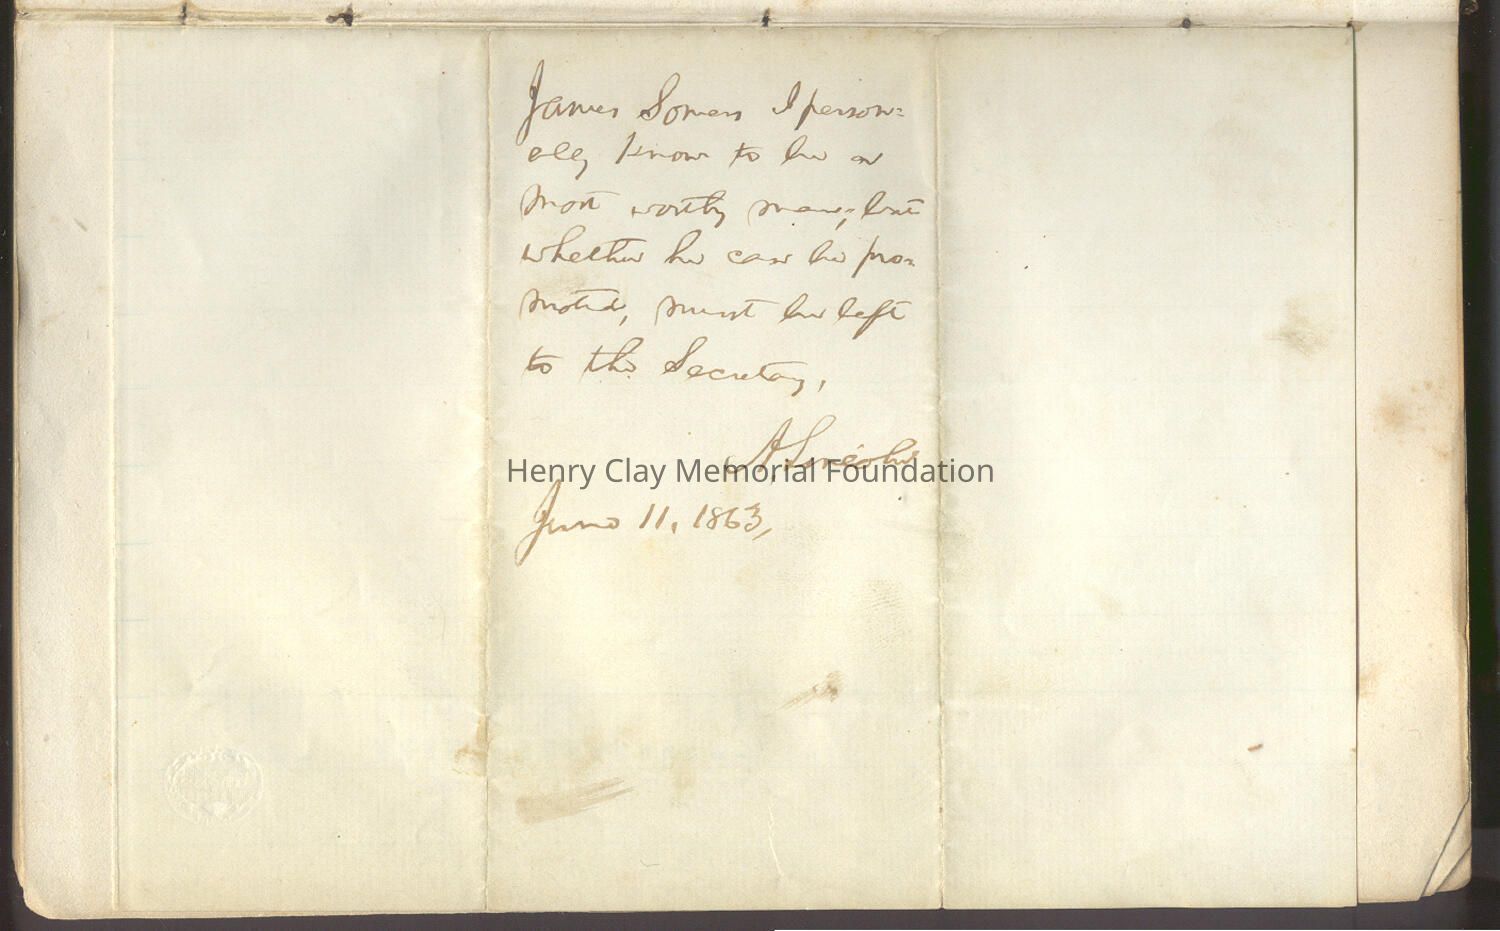 James Somers I person=
ally know to be a
most worthy man; but
whether he can be pro=
moted, must be left
to the Secretary.
A. Lincoln
Henry Clay Memorial Foundation
June 11, 1863,